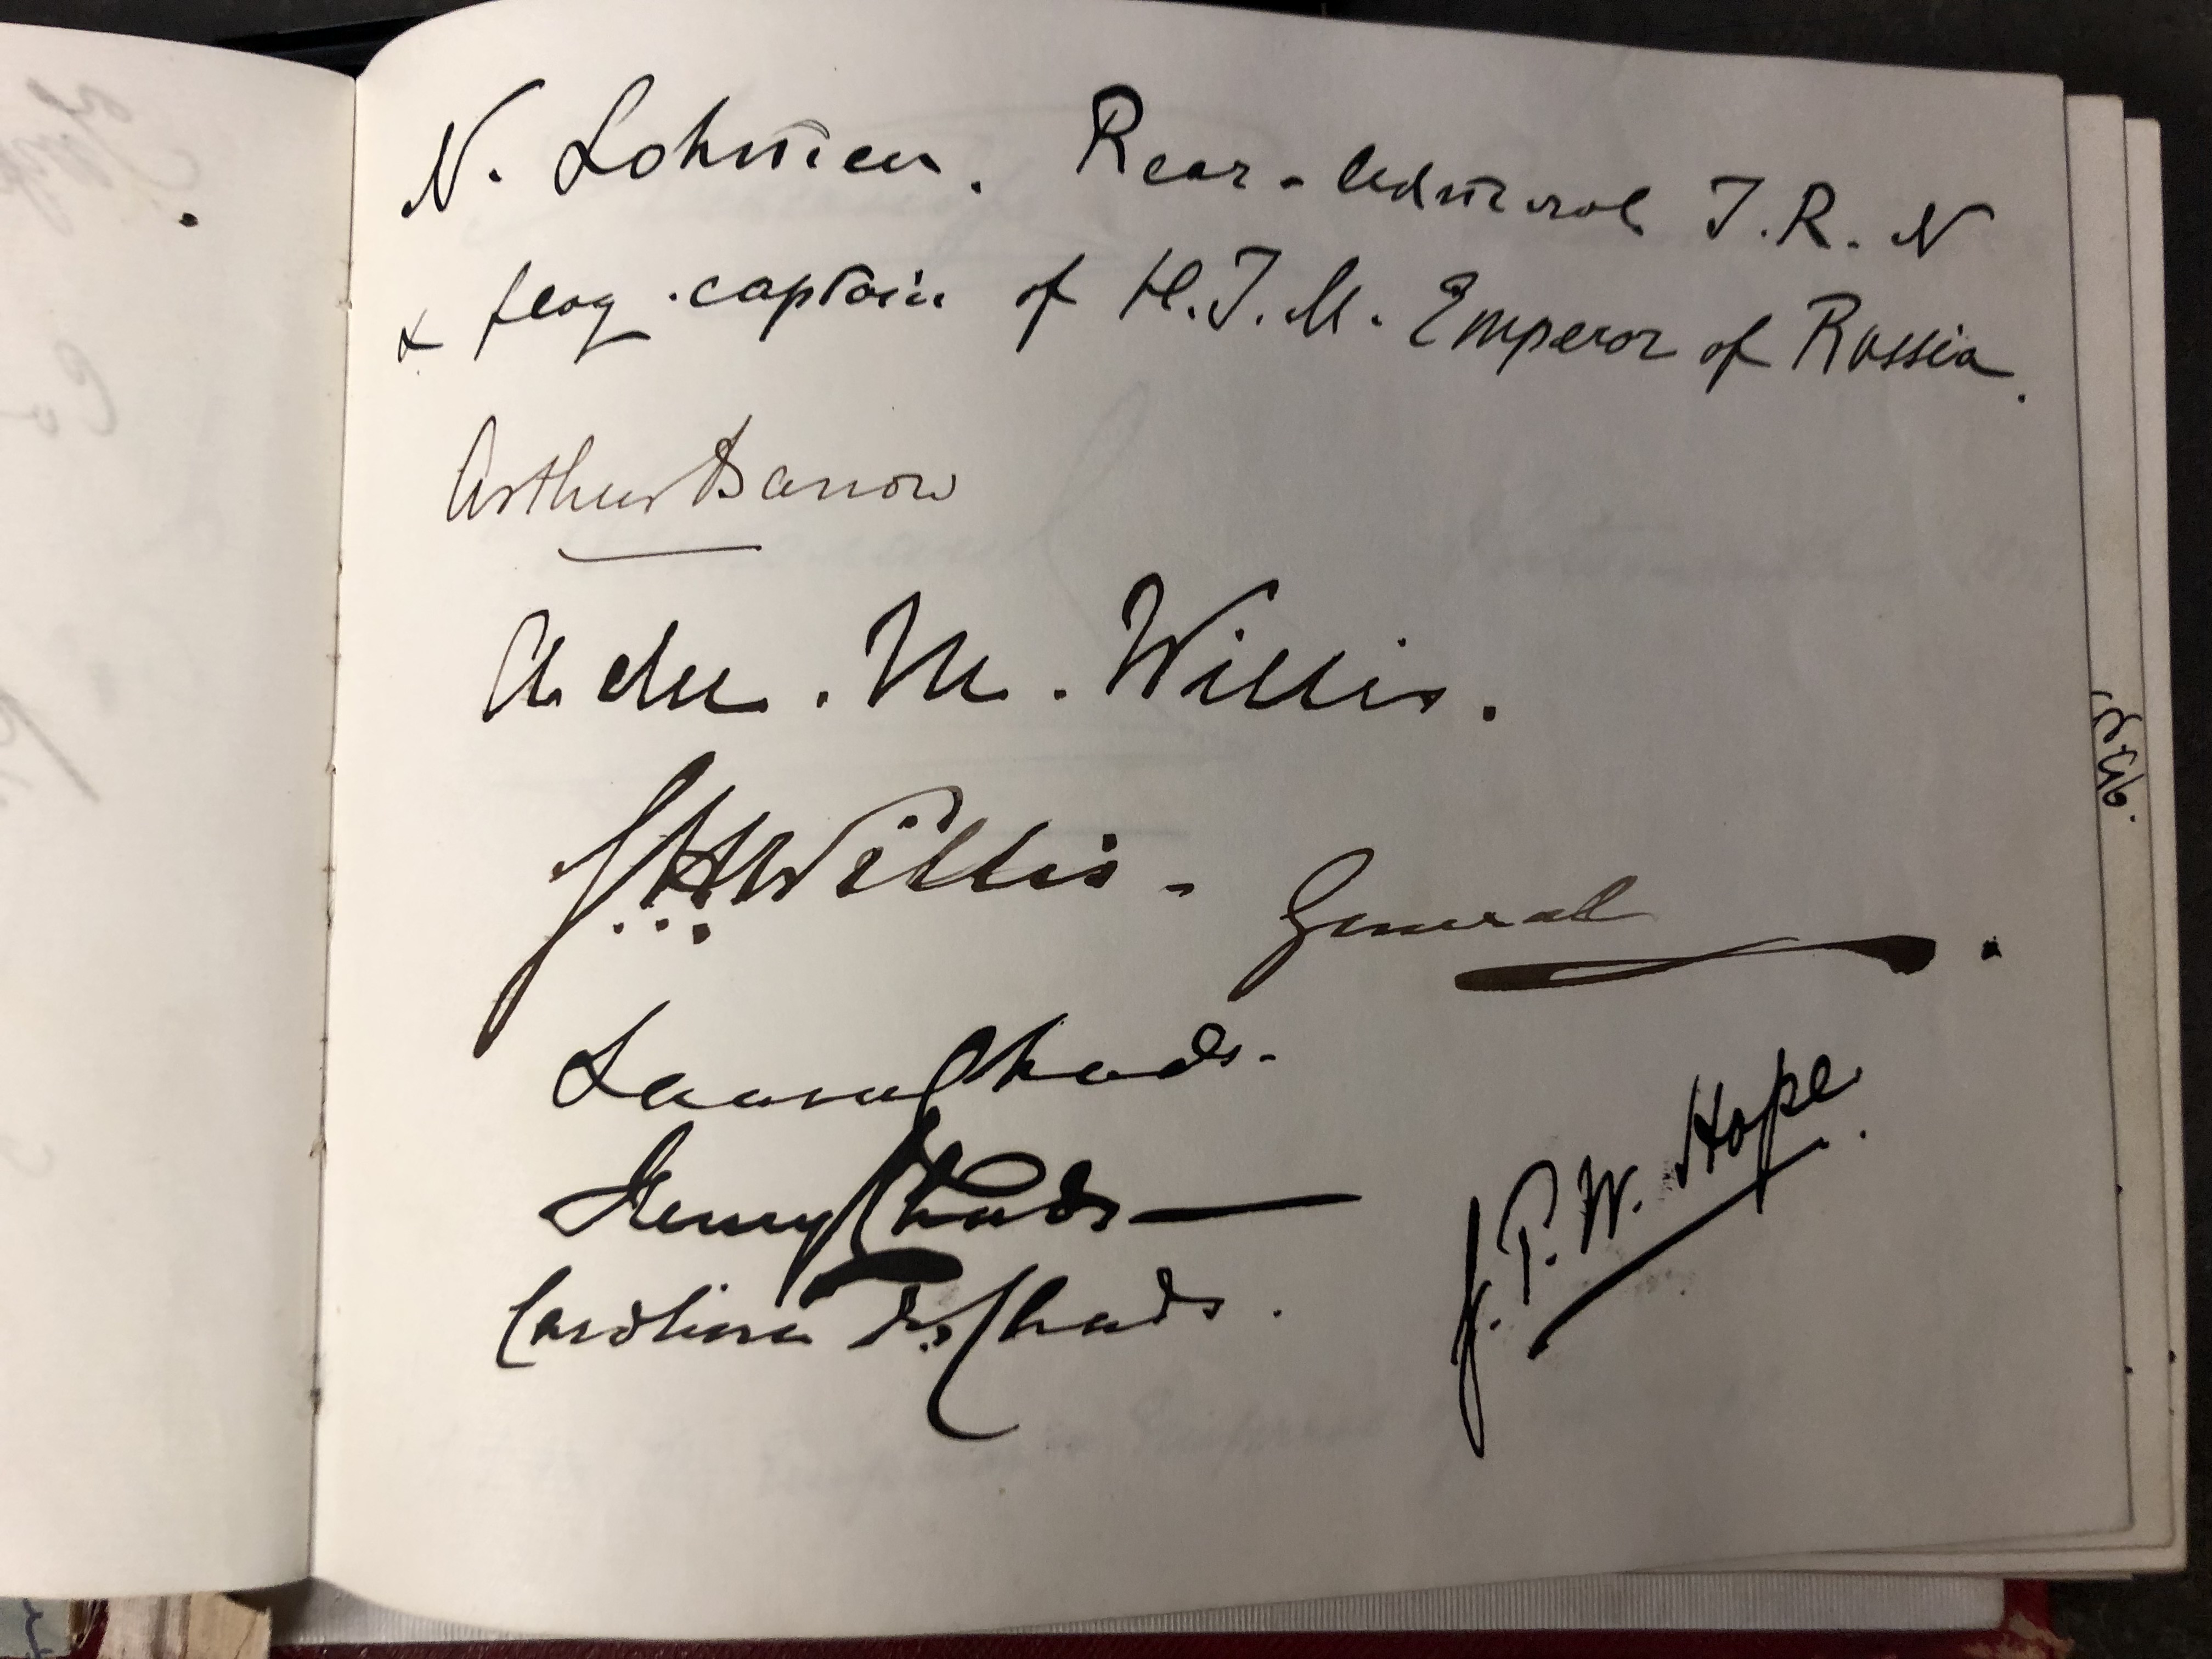 N. Lohmen. Rear-Admiral I.R.N
& flag-captain of H.I.M. Emperor of Russia.
Arthur Barrow
Ada. M. Willis.
G.H.S. Willis - General.
Laura Chads.
Henry Chads
Carolina F. Chads.
J.P.W. Hope.